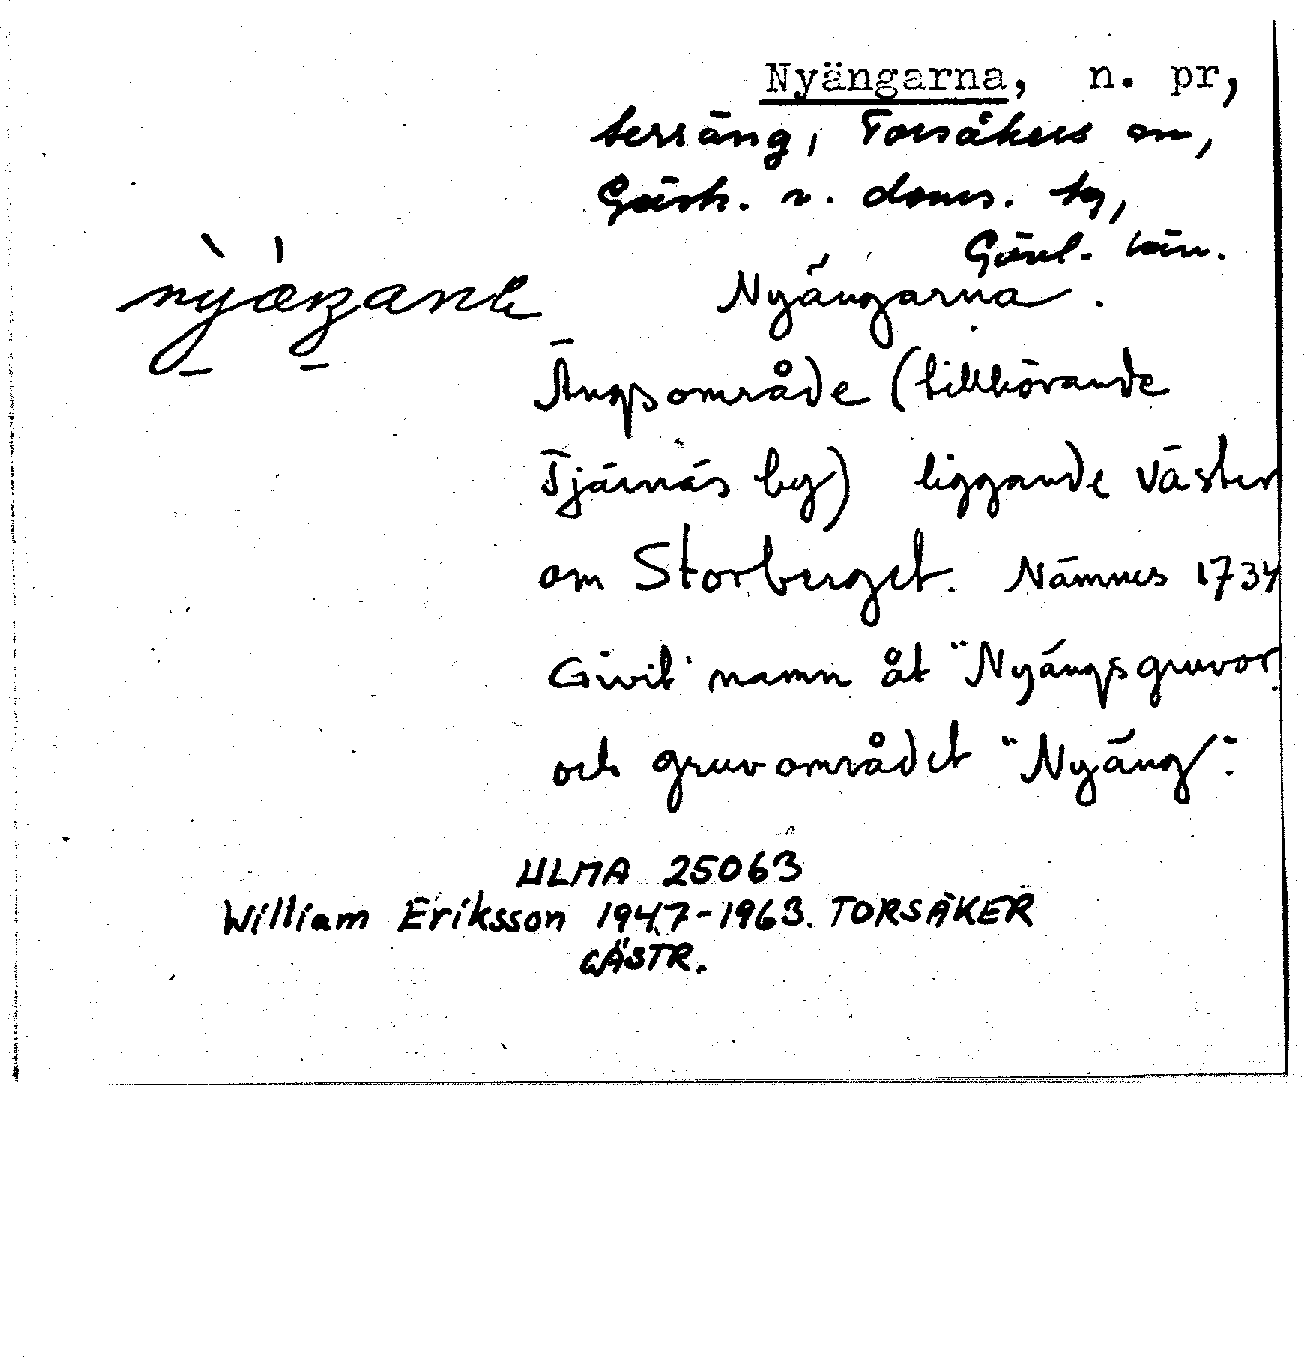 Nyängarna, n. pr,
terräng, Torsåkers sn,
Gästr. v. doms. tg,
Gävl. län.
Nyängarna.
Ängsområde (tillhörande
Tjärnäs by) liggande väster
om Storberget. Nämnes 1734
Givit namn åt "Nyängsgruvor
och gruvområdet "Nyäng".
ULMA 25063
William Eriksson 1947-1963. TORSÅKER
GÄSTR.